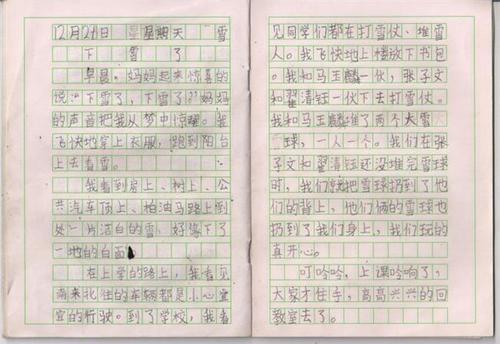 12月21日 星期天 雪
下雪了
早晨，妈妈起来惊喜的
说：“下雪了，下雪了？”妈妈
的声音把我从梦中惊醒。我
飞快地穿上衣服，跑到阳台
上去看雪。
我看到房上、树上、公
共汽车顶上、柏油马路上到
处一片洁白的雪，好像下了
一地的白面。
在上学的路上，我看见
南来北往的车辆都是小心翼
翼的行驶。到了学校，我看
见同学们都在打雪仗、堆雪
人。我飞快地上楼放下书包。
我和马王麟一伙，张子文
和翟清钰一伙下去打雪仗。
我和马王麟堆了两个大雪
球，一人一个。我们在张
子文和翟清钰还没堆完雪球
时，我们就把雪球扔到了他
们的背上，他们俩的雪球也
扔到了我们身上，我们玩的
真开心。
叮呤呤，上课呤响了，
大家才住手，高高兴兴的回
教室去了。